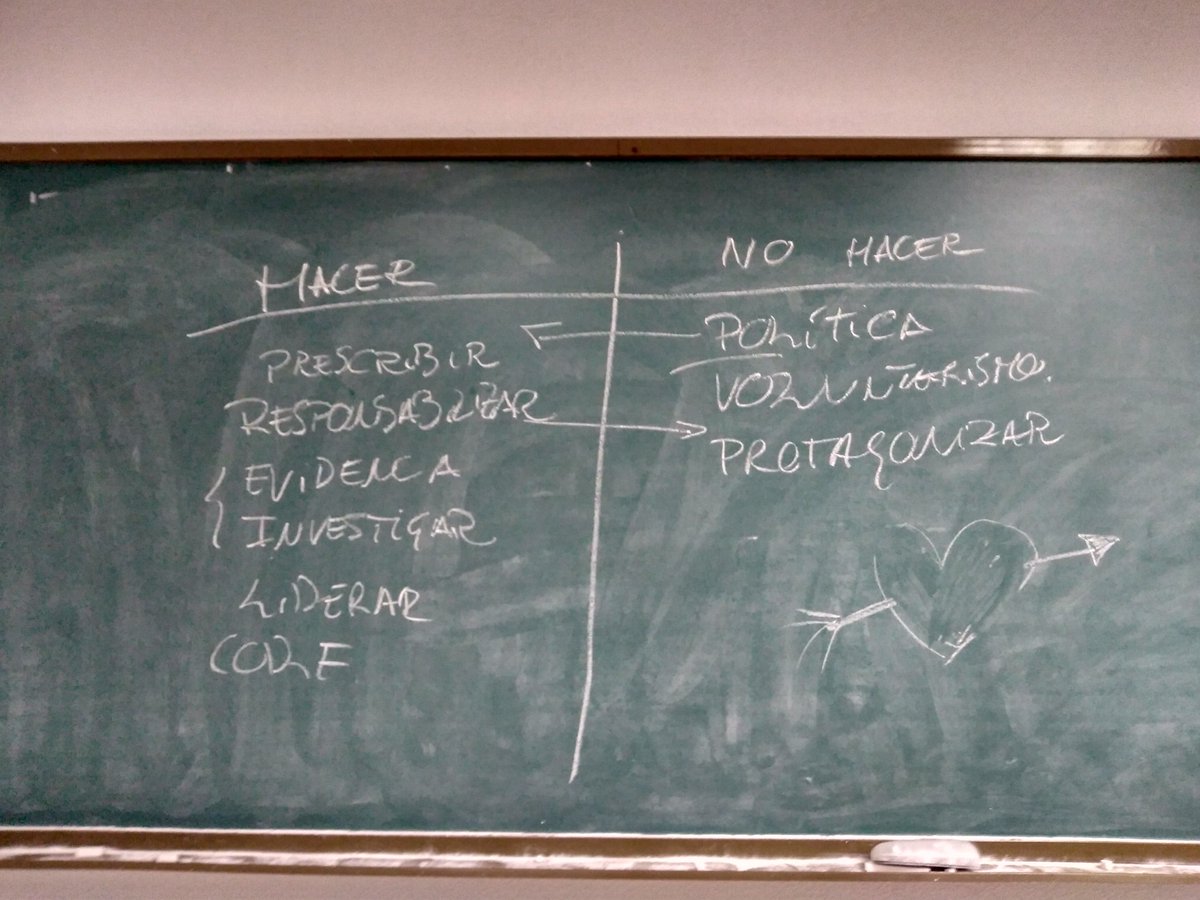 HACER
NO HACER
PRESCRIBIR
RESPONSABILIZAR
EVIDENCIA
INVESTIGAR
LIDERAR
POLÍTICA
VOLUNTARISMO.
PROTAGONIZAR